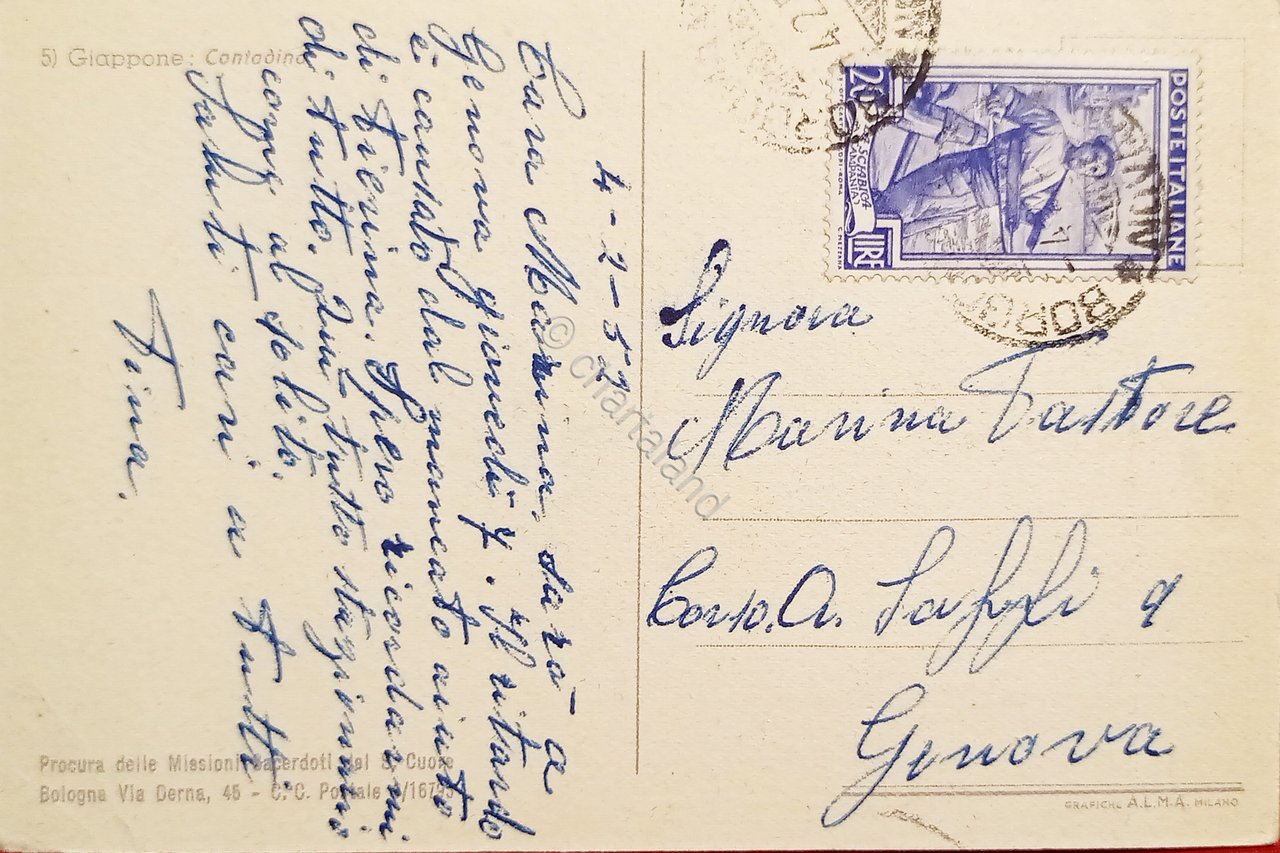 5) Giappone: Contadina
4-2-52
Cara Marina, sarò a
Genova giovedì 7. Il ritardo
è causato dal mancato aiuto
di Pierina. Spero ricordarmi
di tutto. Qui tutto stazionario
come al solito.
Saluti cari a tutti
Tina.
Procura delle Missioni Sacerdoti del S. Cuore
Bologna Via Derna, 45 - C.C. Postale 8/16795
POSTE ITALIANE
20 LIRE
SCIABICA
(CAMPANIA)
Signora
Marina Pastore
Corso A. Saffi 9
Genova
GRAFICHE A.L.M.A. MILANO
© chartaland